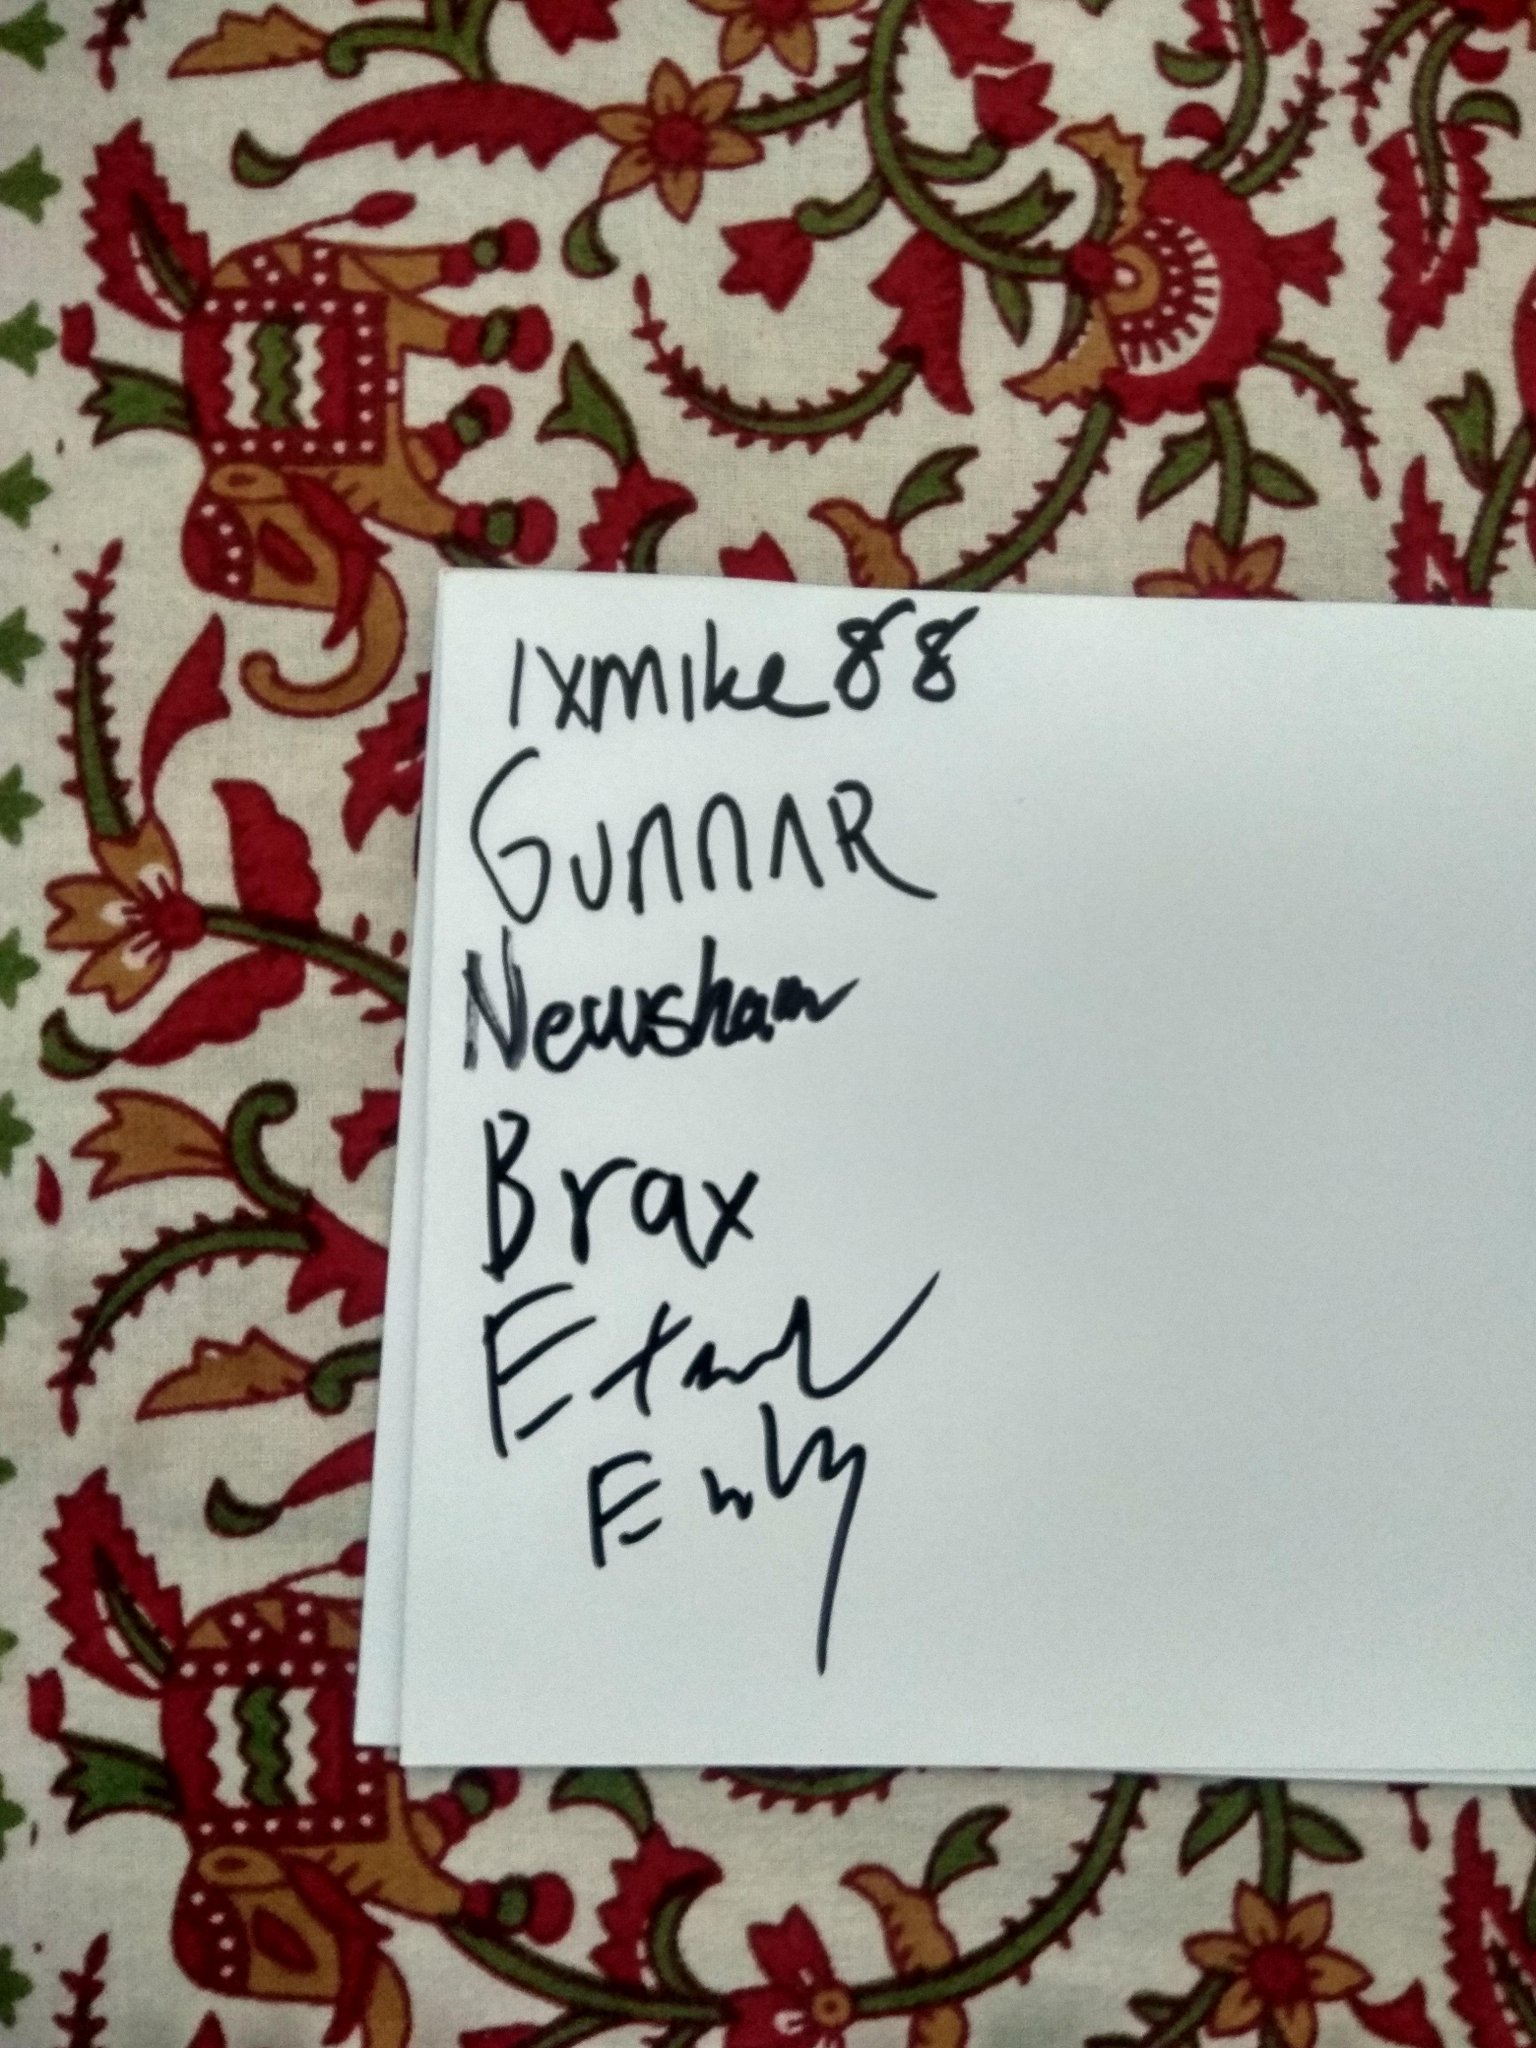 1xmike88
GUNNAR
Newsham
Brax
Emily